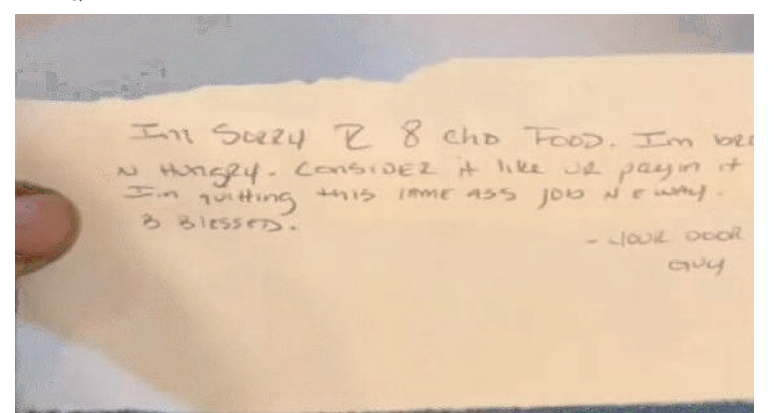 Im SORRY I 8 chO FOOD. Im bro
N HUNGRY. CONSIDER it like UR payin it
I'm quitting this LAME ASS JOB N E WAY.
B BLESSED.
- YOUR DOOR
GUY